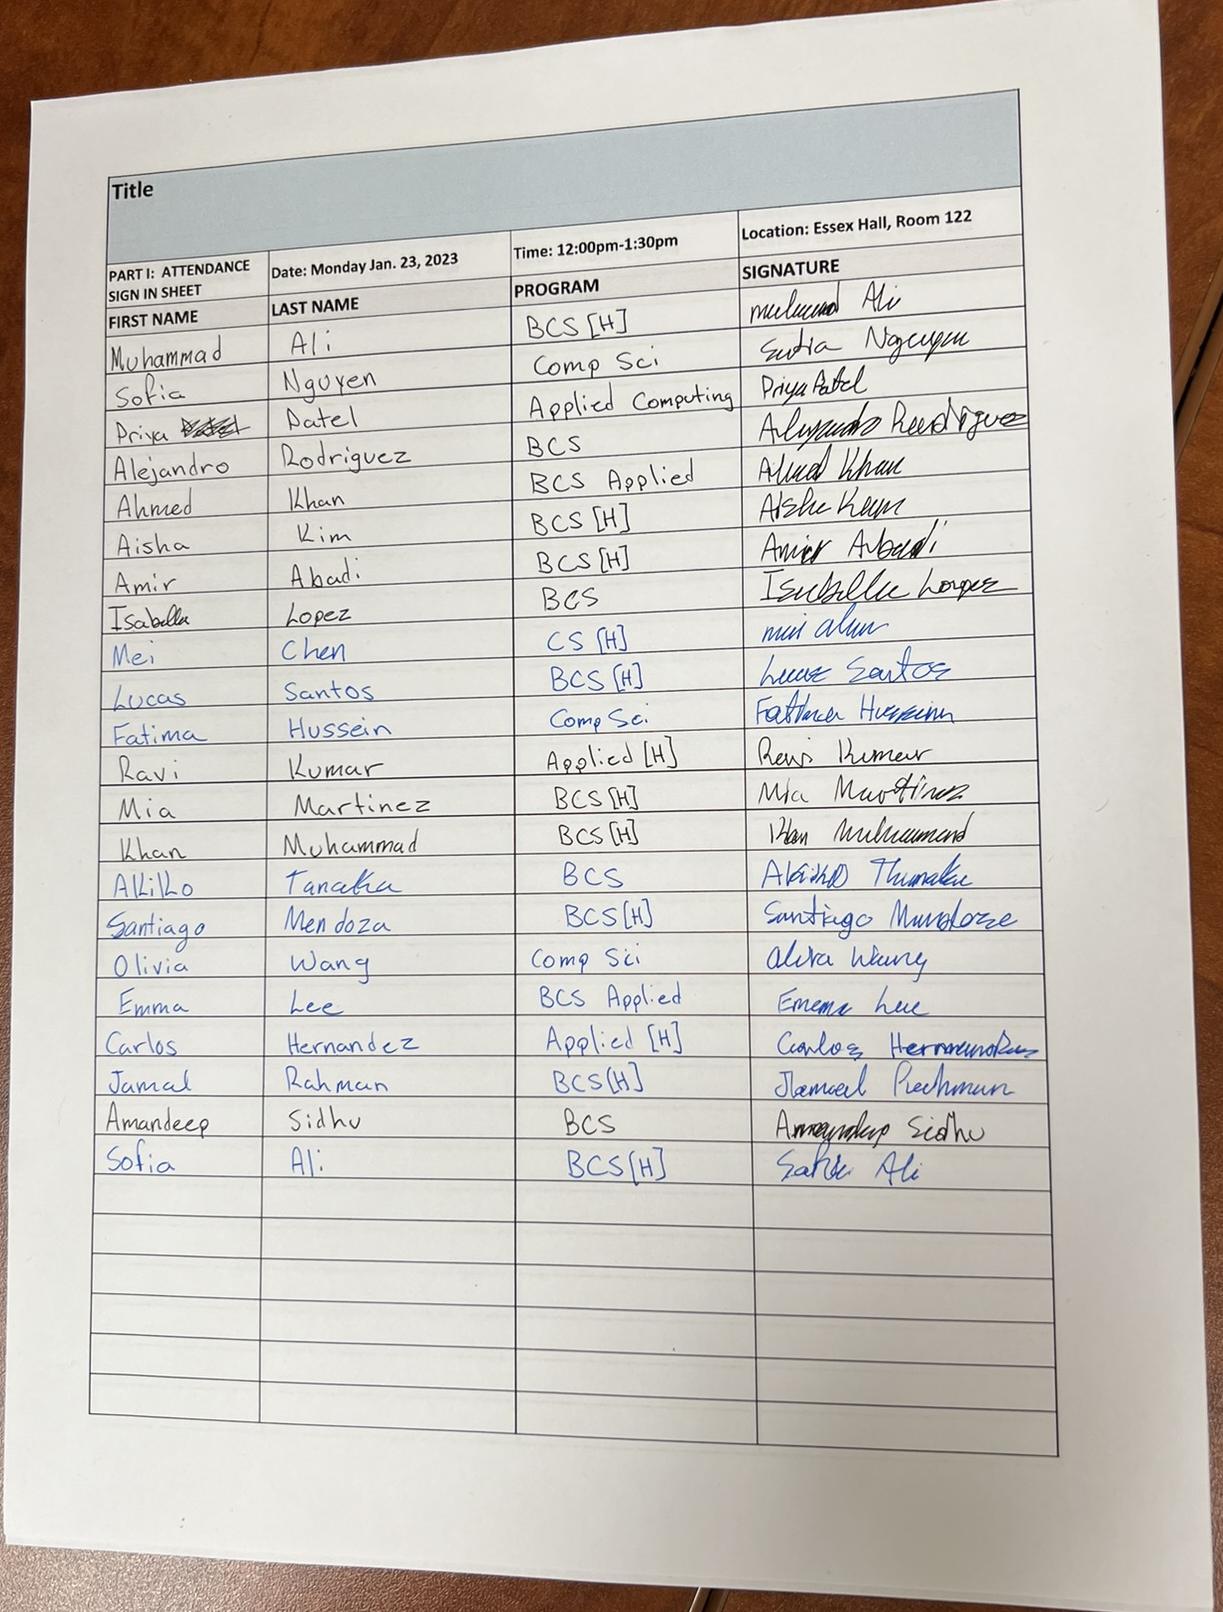 Title
PART I: ATTENDANCE SIGN IN SHEET Date: Monday Jan. 23, 2023 Time: 12:00pm-1:30pm Location: Essex Hall, Room 122
FIRST NAME LAST NAME PROGRAM SIGNATURE
Muhammad Ali BCS [H] Ali
Sofia Nguyen Comp Sci Nguyen
Priya Patel Applied Computing Priya Patel
Alejandro Rodriguez BCS Alejandro Rodriguez
Ahmed Khan BCS Applied Ahmed Khan
Aisha Kim BCS [H] Aisha
Amir Abadi BCS [H] Amir Abadi
Isabella Lopez BCS Isabella Lopez
Mei Chen CS [H]
Lucas Santos BCS [H] Lucas Santos
Fatima Hussein Comp Sci Fatima Hussein
Ravi Kumar Applied [H] Ravi Kumar
Mia Martinez BCS [H] Mia Martinez
Khan Muhammad BCS [H] Khan Muhammad
Akiko Tanaka BCS
Santiago Mendoza BCS [H] Santiago Mendoza
Olivia Wang Comp Sci Wang
Emma Lee BCS Applied Emma Lee
Carlos Hernandez Applied [H] Carlos Hernandez
Jamal Rahman BCS [H] Jamal Rahman
Amandeep Sidhu BCS Amandeep Sidhu
Sofia Ali BCS [H] Ali